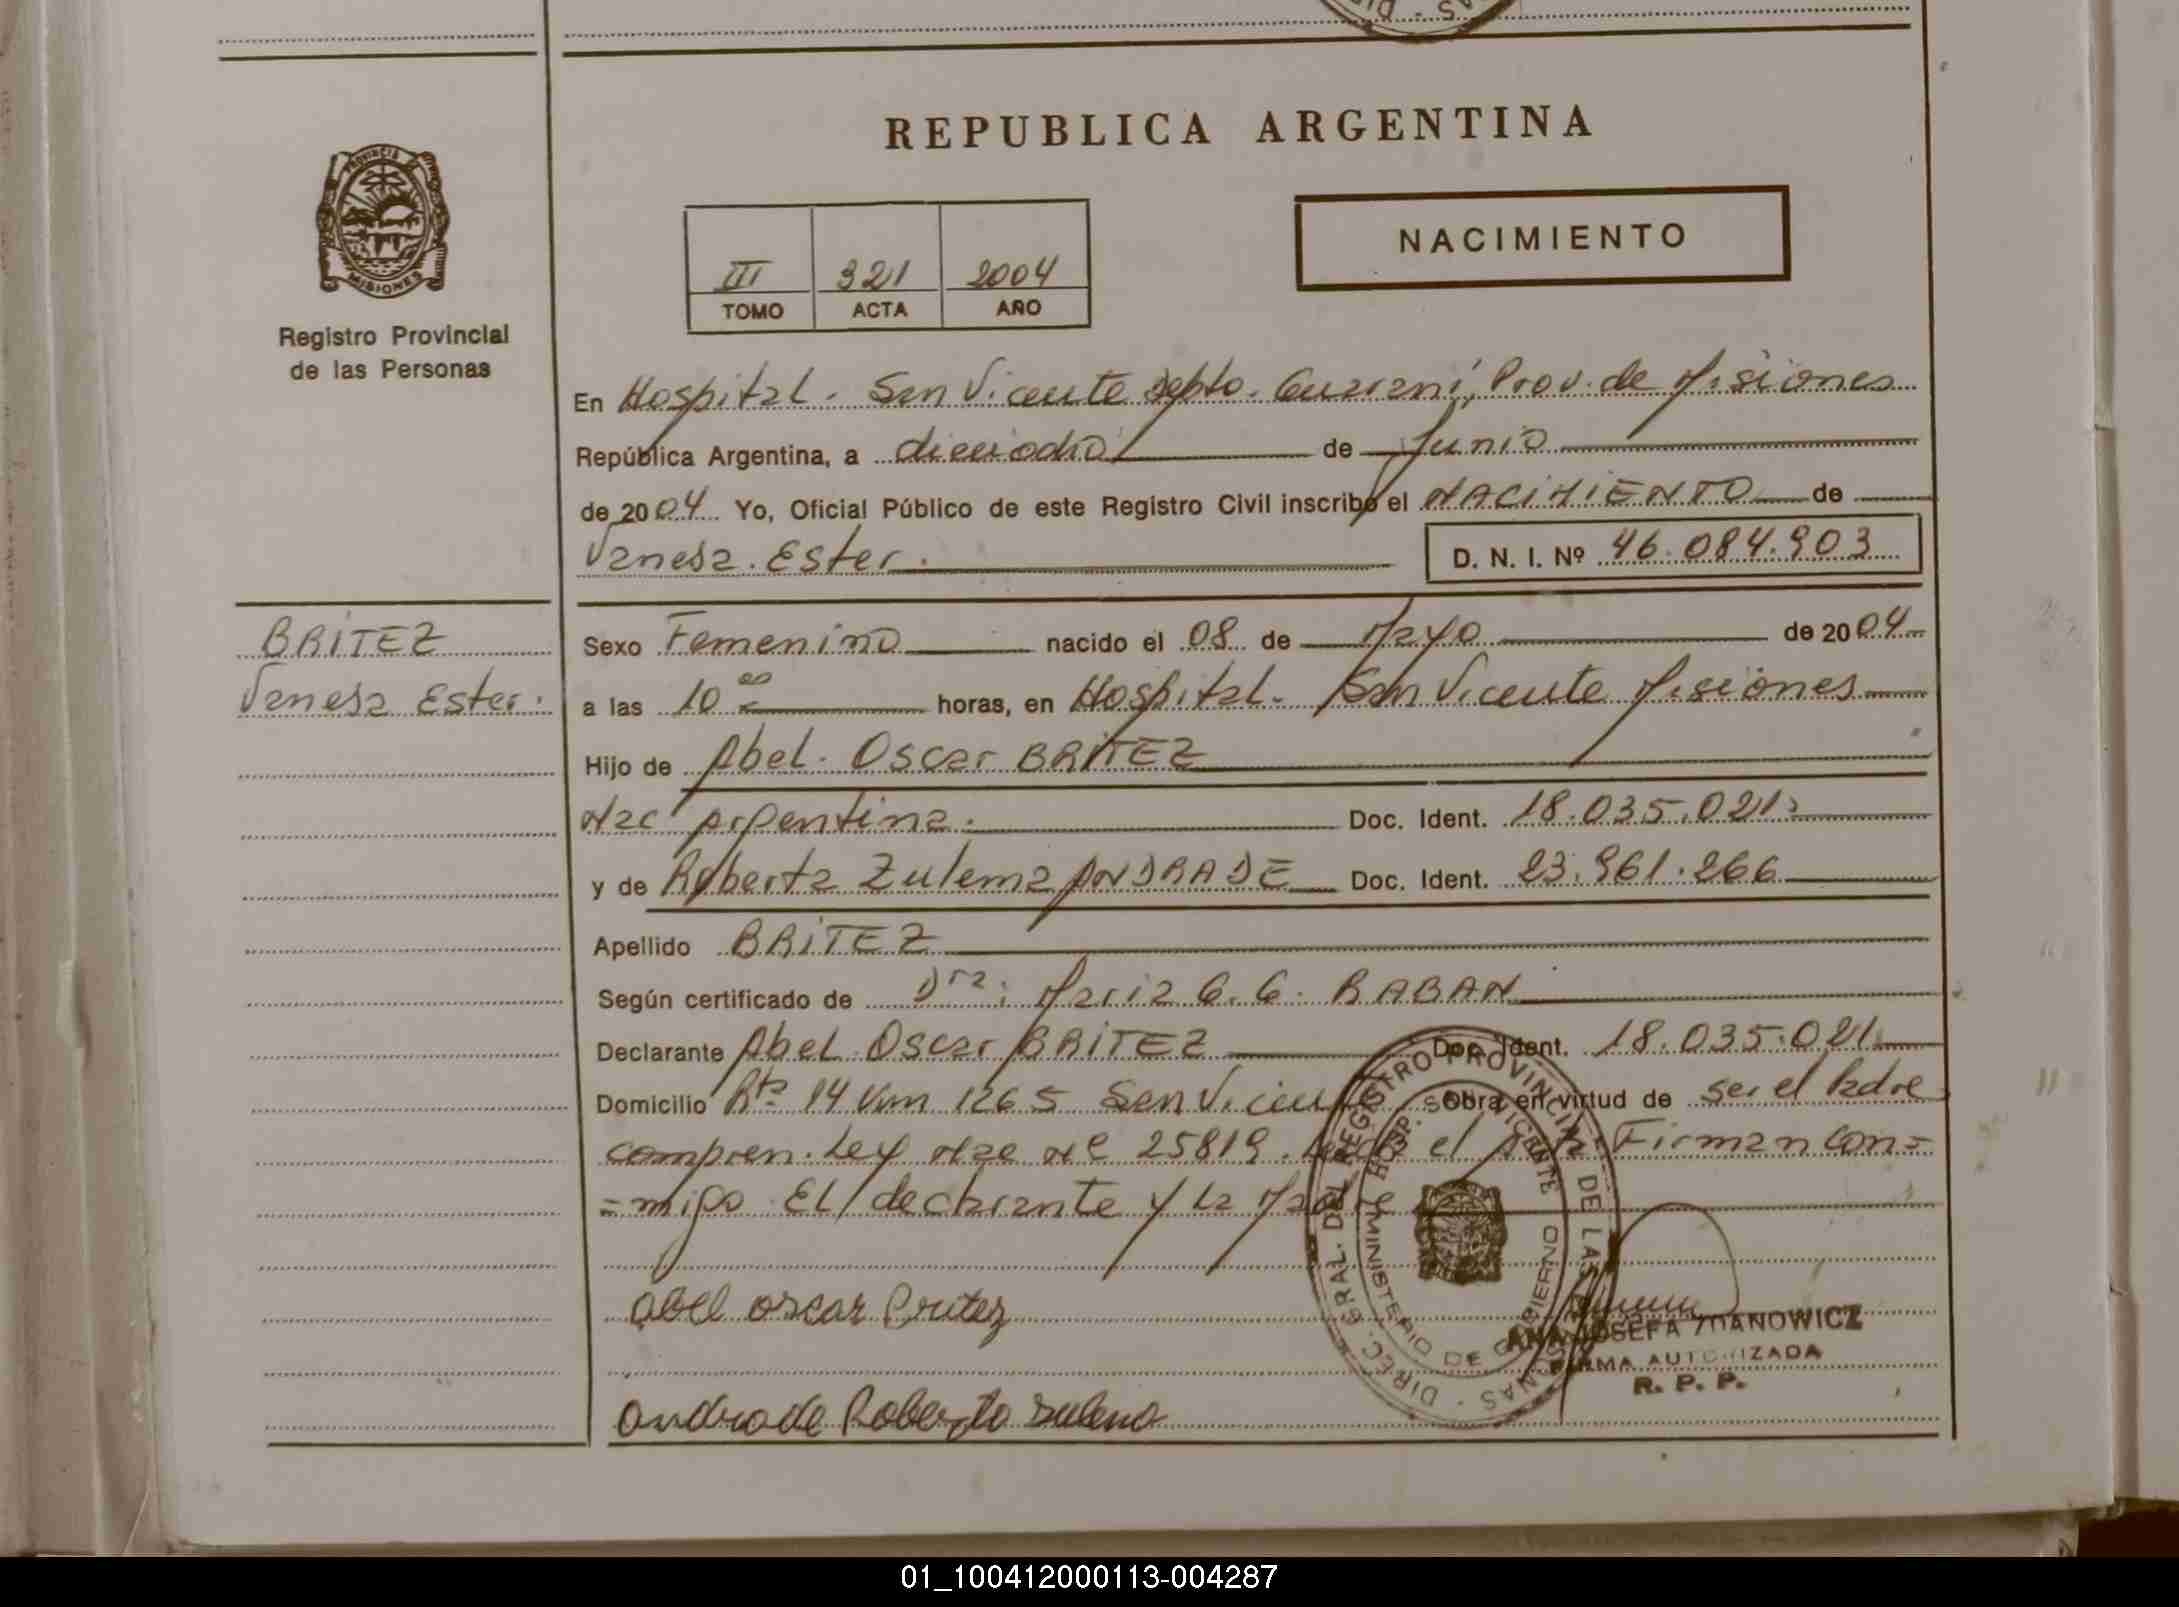 REPUBLICA ARGENTINA
NACIMIENTO
III 321 2004
TOMO ACTA AÑO
PROVINCIA DE
MISIONES
Registro Provincial
de las Personas
En Hospital. San Vicente Depto. Guaraní, Prov. de Misiones
República Argentina, a dieciocho de Junio
de 2004 Yo, Oficial Público de este Registro Civil inscribo el NACIMIENTO de
Vanesa Ester. D. N. I. Nº 46.084.903
BRITEZ
Vanesa Ester.
Sexo Femenino nacido el 08 de Mayo de 2004
a las 10 00 horas, en Hospital. San Vicente Misiones
Hijo de Abel Oscar BRITEZ
Nac Argentina. Doc. Ident. 18.035.021
y de Roberta Zulema ANDRADE Doc. Ident. 23.961.266
Apellido BRITEZ
Según certificado de Dra: Maria G. G. RABAN
Declarante Abel Oscar BRITEZ Doc. Ident. 18.035.021
Domicilio Rta 14 Km 1265 San Vicente Obra en virtud de ser el Padre
compren. Ley Nac Nº 25819. el Firman con=
=migo El declarante y la Madre
Abel oscar Britez
andrade Roberta zulema
DIREC. GRAL. DEL REGISTRO PROVINCIAL DE LAS PERSONAS
HOSP. SAN VICENTE
MINISTERIO DE GOBIERNO
ANA JOSEFA
FIRMA AUTORIZADA
R. P. P.
01_100412000113-004287